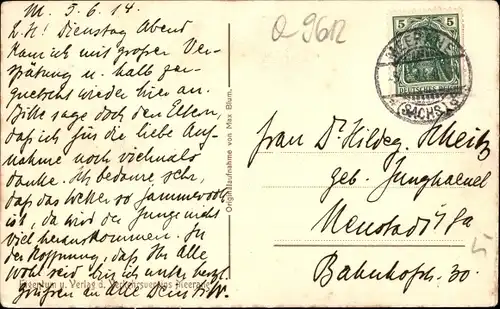 M. 3.6.14.
L. H.! Dienstag Abend
kam ich mit großer Ver-
spätung u. halb zer-
quetscht wieder hier an.
Bitte sage doch den Eltern,
daß ich für die liebe Auf-
nahme noch vielmals
danke. Ich bedaure sehr,
daß das Wetter so jammervoll
ist, da wird der Junge nicht
viel herauskommen. In
der Hoffnung, daß Ihr Alle
wohl seid bin ich unter herzl.
Grüßen an Alle Dein
Eigentum u. Verlag d. Verkehrsvereins Meerane
Originalaufnahme von Max Blum.
Q 9612
5 5
DEUTSCHES REICH
MEERANE
(SACHS.)
Frau Dr. Hildeg.
geb. Junghaenel
Neustadt
Bahnhofstr. 30.